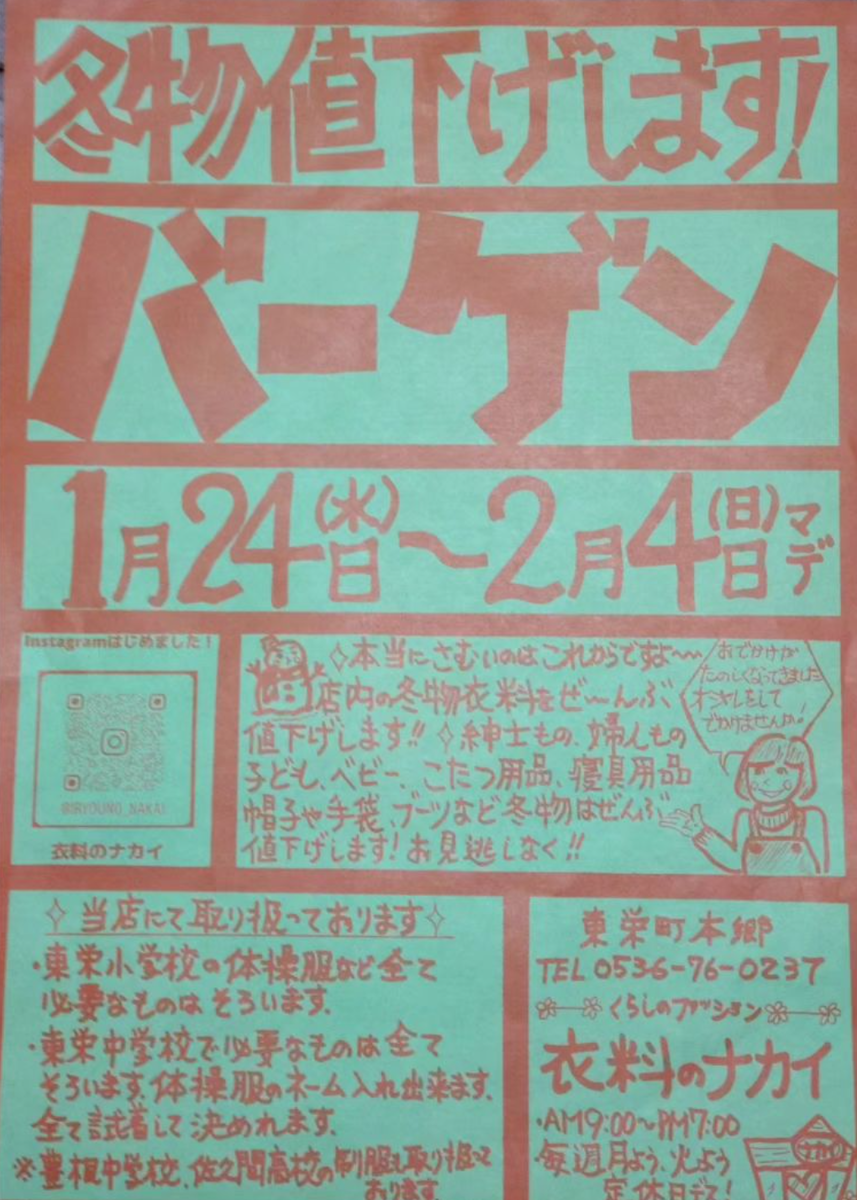 冬物値下げします!
バーゲン
1月24日(水)～2月4日(日)マデ
Instagramはじめました!
@IRYOUNO_NAKAI
衣料のナカイ
✧本当にさむいのはこれからですよ〜〜
店内の冬物衣料をぜーんぶ
値下げします!! ✧紳士もの、婦人もの
子ども、ベビー、こたつ用品、寝具用品
帽子や手袋、ブーツなど冬物はぜんぶ
値下げします!お見逃しなく!!
おでかけが
たのしくなってきました
オシャレをして
でかけませんか!
✧当店にて取り扱っております✧
・東栄小学校の体操服など全て
必要なものはそろいます。
・東栄中学校で必要なものは全て
そろいます。体操服のネーム入れ出来ます。
全て試着して決めれます。
※豊根中学校、佐久間高校の制服も取り扱って
おります。
東栄町本郷
TEL 0536-76-0237
くらしのファッション
衣料のナカイ
・AM9:00～PM7:00
・毎週月よう、火よう
定休日です!